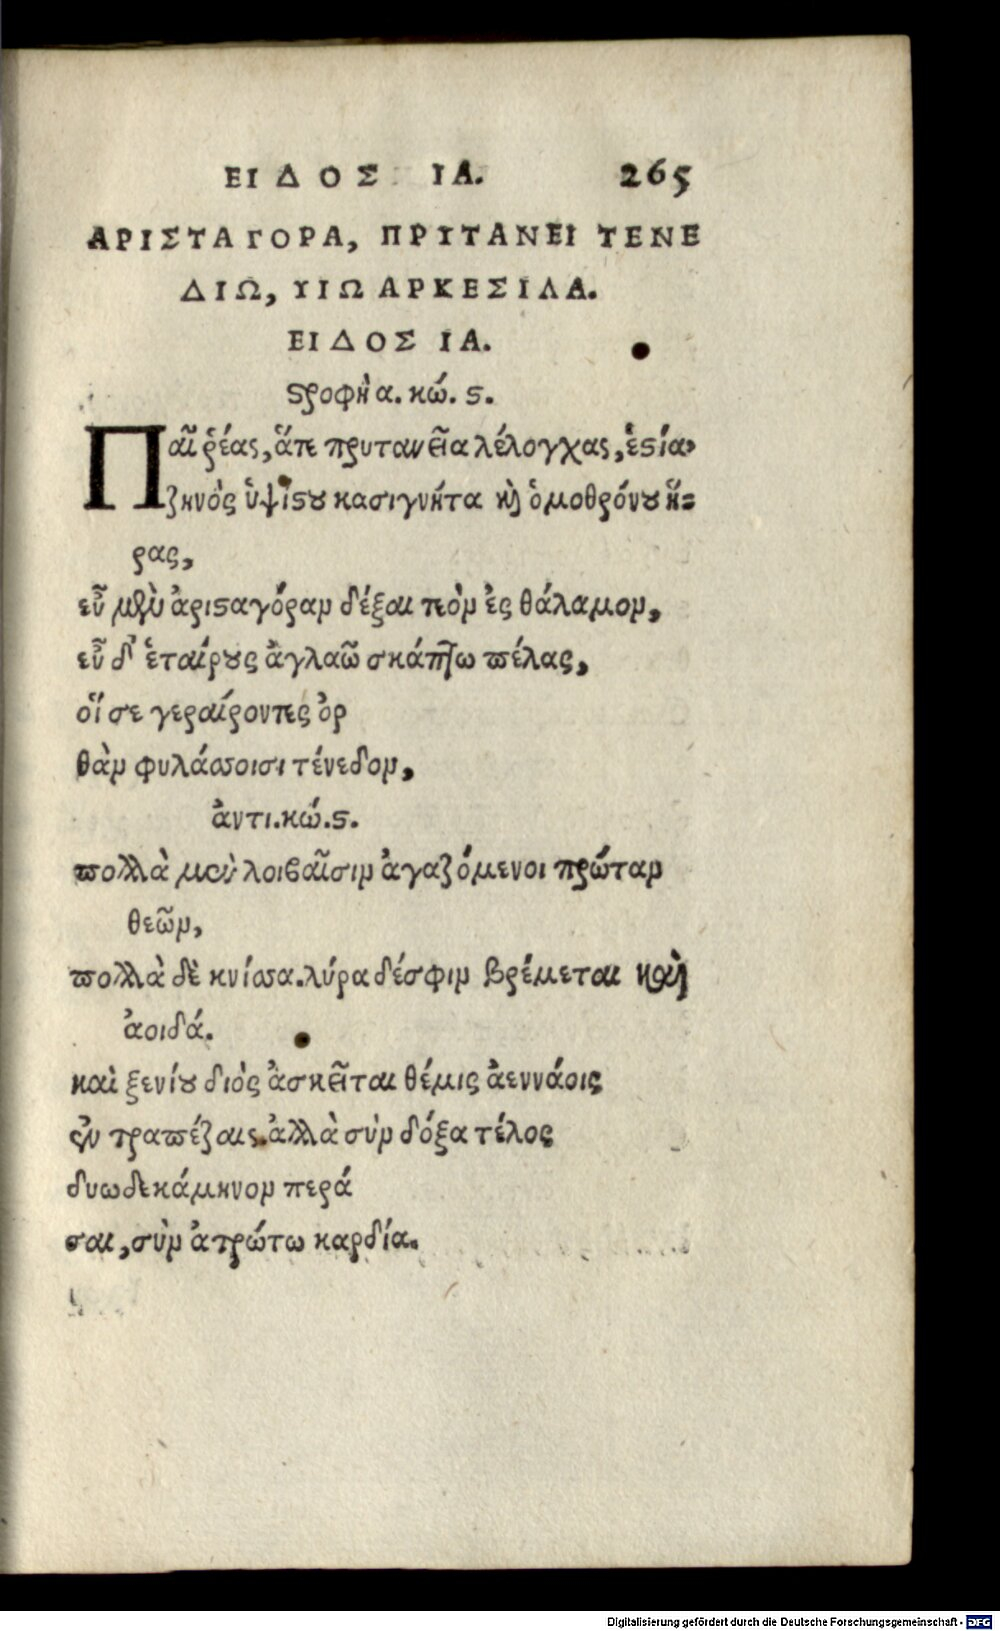 ΕΙΔΟΣ ΙΑ. 265
ΑΡΙΣΤΑΓΟΡΑ, ΠΡΥΤΑΝΕΙ ΤΕΝΕ
ΔΙΩ, ΥΙΩ ΑΡΚΕΣΙΛΑ.
ΕΙΔΟΣ ΙΑ.
ϛροφὴ α. κώ. ϛ.
Παῖ ῥέας, ἅτε πρυτανεῖα λέλογχας, ἑϛία,
ζηνὸς ὑψίϛου κασιγνήτα καὶ ὁμοθρόνου ἥ=
ρας,
εὖ μὲν ἀριϛαγόραν δέξαι τεὸν ἐς θάλαμον,
εὖ δ' ἑταίρους ἀγλαῶ σκάπτω πέλας,
οἵ σε γεραίροντες ὀρ
θὰν φυλάσσοισι τένεδον,
ἀντι. κώ. ϛ.
πολλὰ μὲν λοιβαῖσιν ἀγαζόμενοι πρώταν
θεῶν,
πολλὰ δὲ κνίσσα. λύρα δέσφιν βρέμεται καὶ
ἀοιδά.
καὶ ξενίου διὸς ἀσκεῖται θέμις ἀεννάοις
ἐν τραπέζαις. ἀλλὰ σὺν δόξα τέλος
δυωδεκάμηνον περά
σαι, σὺν ἀτρώτω καρδία.
Digitalisierung gefördert durch die Deutsche Forschungsgemeinschaft - DFG